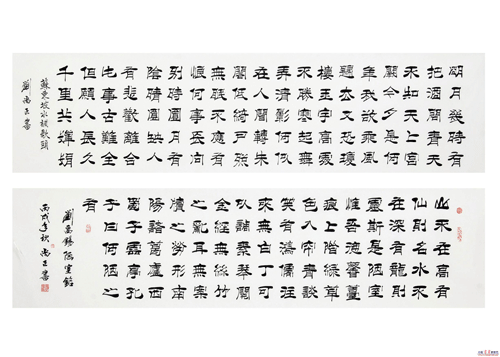 明月幾時有
把酒問青天
不知天上宮
闕今夕是何
年我欲乘風
歸去又恐瓊
樓玉宇高處
不勝寒起舞
弄清影何似
在人間轉朱
閣低綺戶照
無眠不應有
恨何事長向
别時圓月有
陰晴圓缺人
有悲歡離合
此事古難全
但願人長久
千里共嬋娟
蘇東坡水調歌頭
劉尚書
山不在高有
仙則名水不
在深有龍則
靈斯是陋室
惟吾德馨苔
痕上階綠草
色入帘青談
笑有鴻儒往
來無白丁可
以調素琴閱
金經無絲竹
之亂耳無案
牘之勞形南
陽諸葛廬西
蜀子雲亭孔
子曰何陋之
有
劉禹錫陋室銘
丙戌年秋尚書